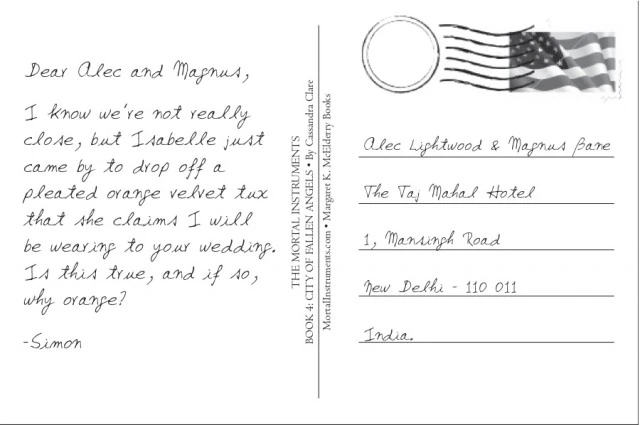 Dear Alec and Magnus,
I know we're not really
close, but Isabelle just
came by to drop off a
pleated orange velvet tux
that she claims I will
be wearing to your wedding.
Is this true, and if so,
why orange?
-Simon
THE MORTAL INSTRUMENTS
BOOK 4: CITY OF FALLEN ANGELS • By Cassandra Clare
MortalInstruments.com • Margaret K. McElderry Books
Alec Lightwood & Magnus Bane
The Taj Mahal Hotel
1, Mansingh Road
New Delhi - 110 011
India.